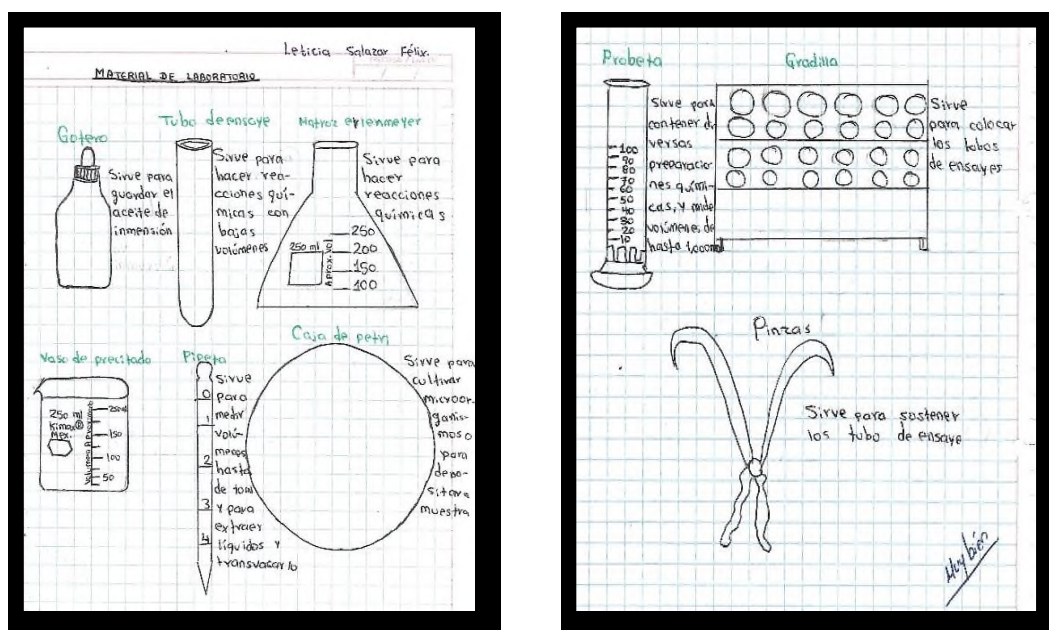 Leticia Salazar Félix.
MATERIAL DE LABORATORIO
Gotero
Sirve para
guardar el
aceite de
inmensión
Tubo de ensaye
Sirve para
hacer rea-
cciones quí-
micas con
bajas
volúmenes
Matraz erlenmeyer
Sirve para
hacer
reacciones
químicas
250
200
150
100
250 ml
Aprox. Vol
Vaso de precitado
250 ml
Kimax®
Mex.
Volumenes A Proximado
250ml
150
100
50
Pipeta
Sirve
para
medir
volú-
menes
hasta
de 10ml
y para
extraer
líquidos y
transvasarlo
0
1
2
3
4
Caja de petri
Sirve para
cultivar
microor-
ganis-
mos o
para
depo-
sitar a
muestra
Probeta
Sirve para
contener di
versas
preparacio-
nes quími-
cas, y mide
volúmenes de
hasta 1,000ml
100
90
80
70
60
50
40
30
20
10
Gradilla
Sirve
para colocar
los tobos
de ensayes
Pinzas
Sirve para sostener
los tubo de ensaye
Muy bien